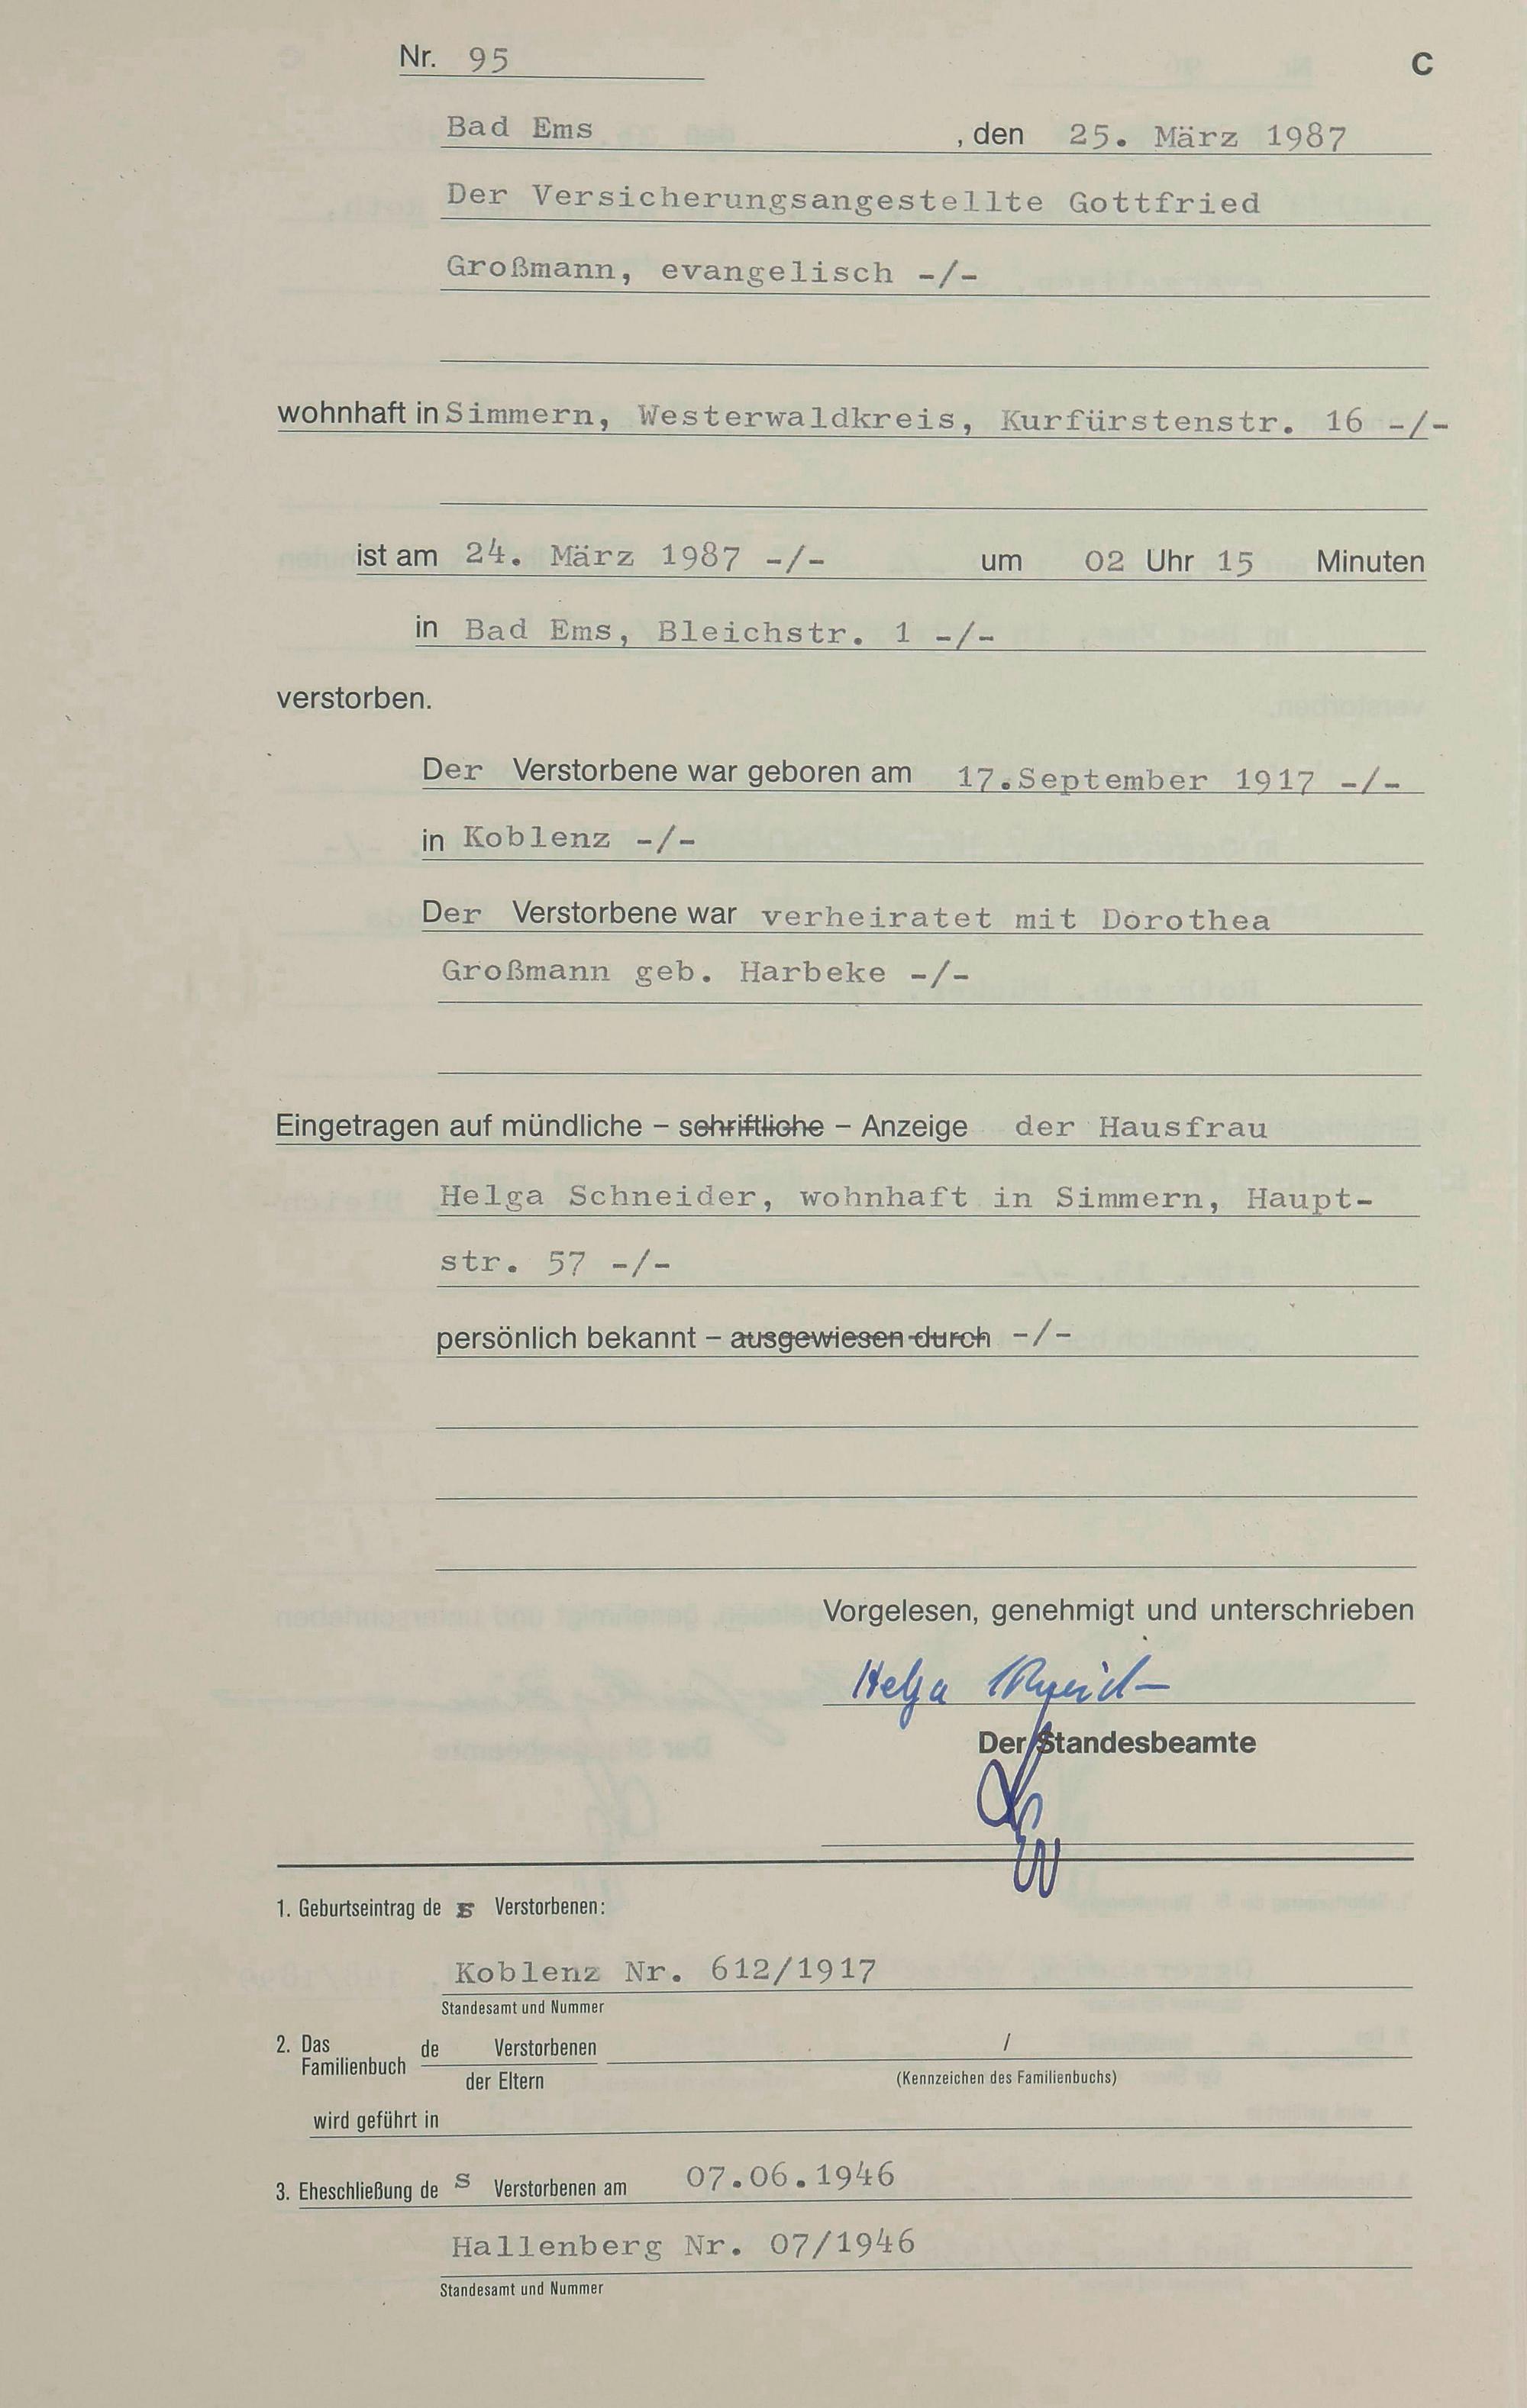 Nr. 95
C
Bad Ems , den 25. März 1987
Der Versicherungsangestellte Gottfried
Großmann, evangelisch -/-
wohnhaft in Simmern, Westerwaldkreis, Kurfürstenstr. 16 -/-
ist am 24. März 1987 -/- um 02 Uhr 15 Minuten
in Bad Ems, Bleichstr. 1 -/-
verstorben.
Der Verstorbene war geboren am 17.September 1917 -/-
in Koblenz -/-
Der Verstorbene war verheiratet mit Dorothea
Großmann geb. Harbeke -/-
Eingetragen auf mündliche – schriftliche – Anzeige der Hausfrau
Helga Schneider, wohnhaft in Simmern, Haupt-
str. 57 -/-
persönlich bekannt – ausgewiesen durch -/-
Vorgelesen, genehmigt und unterschrieben
Helga
Der Standesbeamte
1. Geburtseintrag de s Verstorbenen:
Koblenz Nr. 612/1917
Standesamt und Nummer
2. Das Familienbuch de Verstorbenen /
der Eltern (Kennzeichen des Familienbuchs)
wird geführt in
3. Eheschließung de s Verstorbenen am 07.06.1946
Hallenberg Nr. 07/1946
Standesamt und Nummer